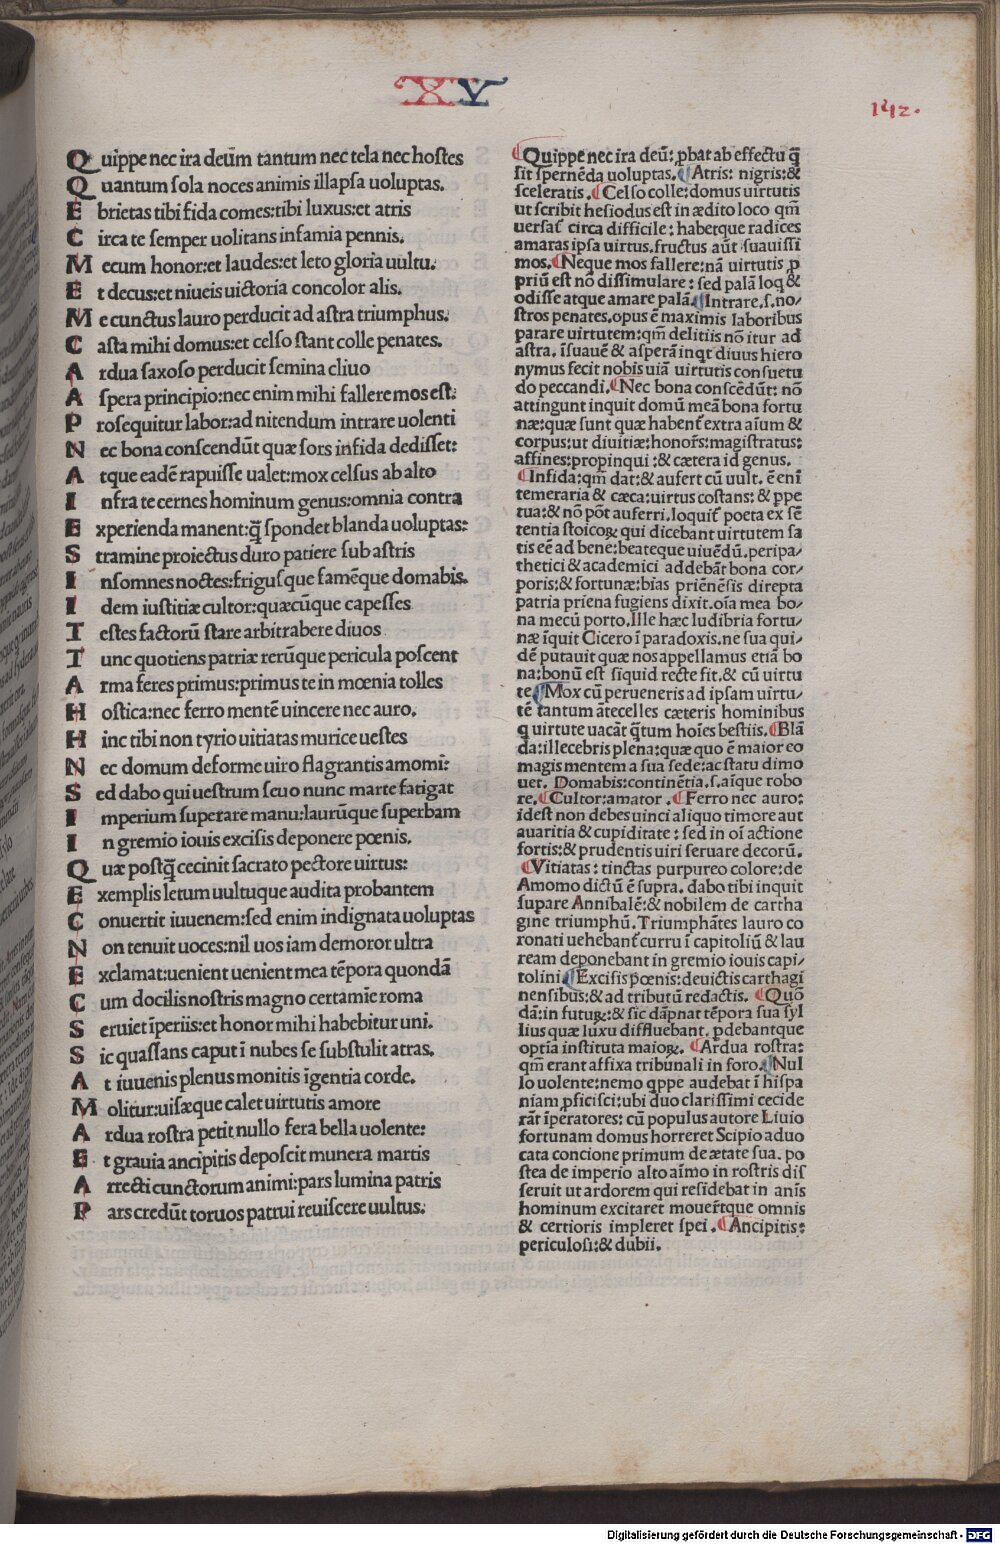 XV
142.
Quippe nec ira deūm tantum nec tela nec hostes
Quantum sola noces animis illapsa uoluptas.
Ebrietas tibi fida comes:tibi luxus:et atris
Circa te semper uolitans infamia pennis.
Mecum honor:et laudes:et leto gloria uultu.
Et decus:et niueis uictoria concolor alis.
Me cunctus lauro perducit ad astra triumphus.
Casta mihi domus:et celso stant colle penates.
Ardua saxoso perducit semina cliuo
Aspera principio:nec enim mihi fallere mos est.
Prosequitur labor:ad nitendum intrare uolenti
Nec bona conscendūt quæ sors infida dedisset:
Atque eadē rapuisse ualet:mox celsus ab alto
Infra te cernes hominum genus:omnia contra
Experienda manent:q̄ spondet blanda uoluptas:
Stramine proiectus duro patiere sub astris
Insomnes noctes:frigusque famēque domabis.
Idem iustitiæ cultor:quæcūque capesses
Testes factorū stare arbitrabere diuos
Tunc quotiens patriæ rerūque pericula poscent
Arma feres primus:primus te in mœnia tolles
Hostica:nec ferro mentē uincere nec auro.
Hinc tibi non tyrio uitiatas murice uestes
Nec domum deforme uiro flagrantis amomi:
Sed dabo qui uestrum seuo nunc marte fatigat
Imperium superare manu:laurūque superbam
In gremio iouis excisis deponere pœnis.
Quæ postq̄ cecinit sacrato pectore uirtus:
Exemplis letum uultuque audita probantem
Conuertit iuuenem:sed enim indignata uoluptas
Non tenuit uoces:nil uos iam demoror ultra
Exclamat:uenient uenient mea tēpora quondā
Cum docilis nostris magno certamīe roma
Seruiet īperiis:et honor mihi habebitur uni.
Sic quassans caput ī nubes se substulit atras.
At iuuenis plenus monitis īgentia corde.
Molitur:uisæque calet uirtutis amore
Ardua rostra petit nullo fera bella uolente:
Et grauia ancipitis deposcit munera martis
Arrecti cunctorum animi:pars lumina patris
Pars credūt toruos patrui reuiscere uultus.
Quippe nec ira deū: ꝓbat ab effectu q̄
sit spernēda uoluptas. Atris: nigris:&
sceleratis. Celso colle:domus uirtutis
ut scribit hesiodus est in ædito loco qm̄
uersat̄ circa difficile: haberque radices
amaras ipsa uirtus.fructus aūt suauissi
mos. Neque mos fallere:nā uirtutis ꝓ
priū est nō dissimulare: sed palā loq̄ &
odisse atque amare palā. Intrare.s.no/
stros penates.opus ē maximis laboribus
parare uirtutem:qm̄ delitiis nō itur ad
astra. īsuauē & asperā inqt diuus hiero
nymus fecit nobis uiā uirtutis consuetu
do peccandi. Nec bona conscēdūt: nō
attingunt inquit domū meā bona fortu
næ:quæ sunt quæ habent̄ extra aīum &
corpus:ut diuitiæ:honorēs:magistratus:
affines:propinqui:& cætera id genus.
Infida:qm̄ dat:& aufert cū uult. ē enī
temeraria & cæca:uirtus cōstans: & ppe
tua:& nō pōt auferri.loquit̄ poeta ex sē
tentia stoicoꝝ qui dicebant uirtutem sa
tis eē ad bene:beateque uiuēdū.peripa/
thetici & academici addebāt bona cor/
poris:& fortunæ:bias priēnēsis direpta
patria priena fugiens dixit.oīa mea bo/
na mecū porto.Ille hæc ludibria fortu/
næ īquit Cicero ī paradoxis.ne sua qui/
dē putauit quæ nos appellamus etiā bo
na:bonū est siquid recte fit.& cū uirtu
te. Mox cū perueneris ad ipsam uirtu/
tē tantum ātecelles cæteris hominibus
q uirtute uacāt q̄tum hoīes bestiis. Blā
da:illecebris plena:quæ quo ē maior eo
magis mentem a sua sede:ac statu dimo
uet. Domabis:continētia.s.aīque robo
re. Cultor:amator. Ferro nec auro:
idest non debes uinci aliquo timore aut
auaritia & cupiditate: sed in oī actione
fortis:& prudentis uiri seruare decorū.
Vitiatas: tinctas purpureo colore:de
Amomo dictū ē supra. dabo tibi inquit
supare Annibalē:& nobilem de cartha
gine triumphū.Triumphātes lauro co
ronati uehebant̄ curru ī capitoliū & lau
ream deponebant in gremio iouis capi/
tolini. Excisis pœnis:deuictis carthagi
nensibus:& ad tributū redactis. Quō
dā:in futuꝝ:& sic dāpnat tēpora sua syl
lius quæ luxu diffluebant. ꝑdebantque
optīa instituta maioꝝ. Ardua rostra:
qm̄ erant affixa tribunali in foro. Nul
lo uolente:nemo qppe audebat ī hispa
niam ꝓficisci:ubi duo clarissimi cecide
rāt īperatores: cū populus autore Liuio
fortunam domus horreret Scipio aduo
cata concione primum de ætate sua. po
stea de imperio alto aīmo in rostris dis
seruit ut ardorem qui residebat in anīs
hominum excitaret mouertque omnis
& certioris impleret spei. Ancipitis:
periculosi:& dubii.
Digitalisierung gefördert durch die Deutsche Forschungsgemeinschaft - DFG